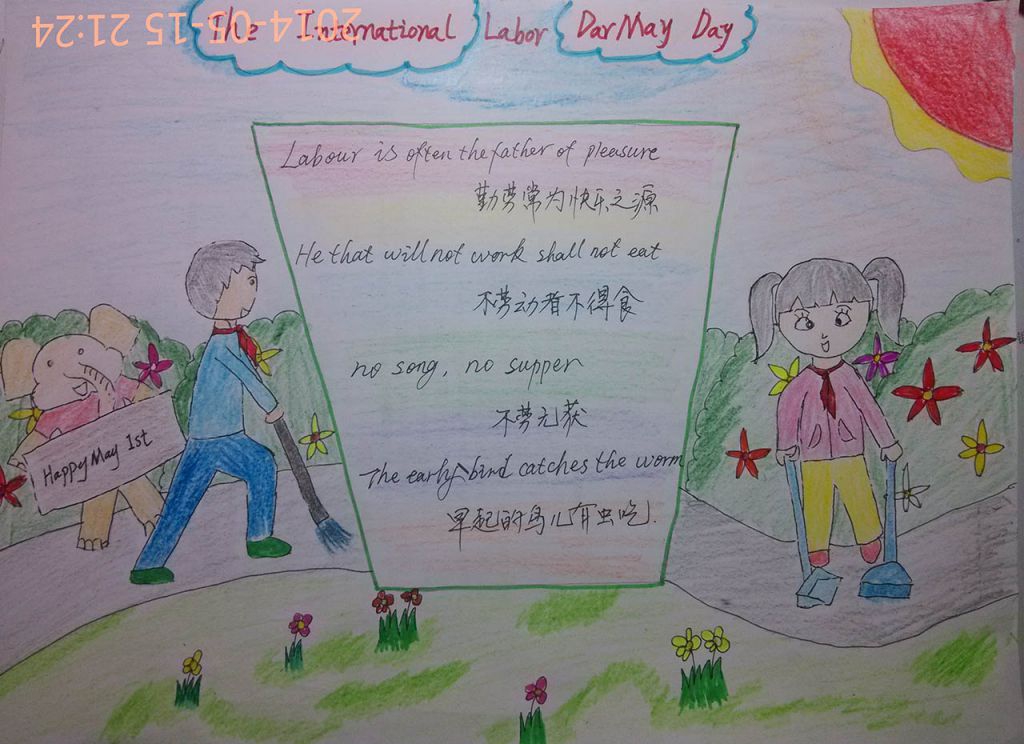 The International Labor Dar May Day
2014-05-15 21:24
Labour is often the father of pleasure
勤劳常为快乐之源
He that will not work shall not eat
不劳动者不得食
no song, no supper
不劳无获
The early bird catches the worm
早起的鸟儿有虫吃.
Happy May 1st